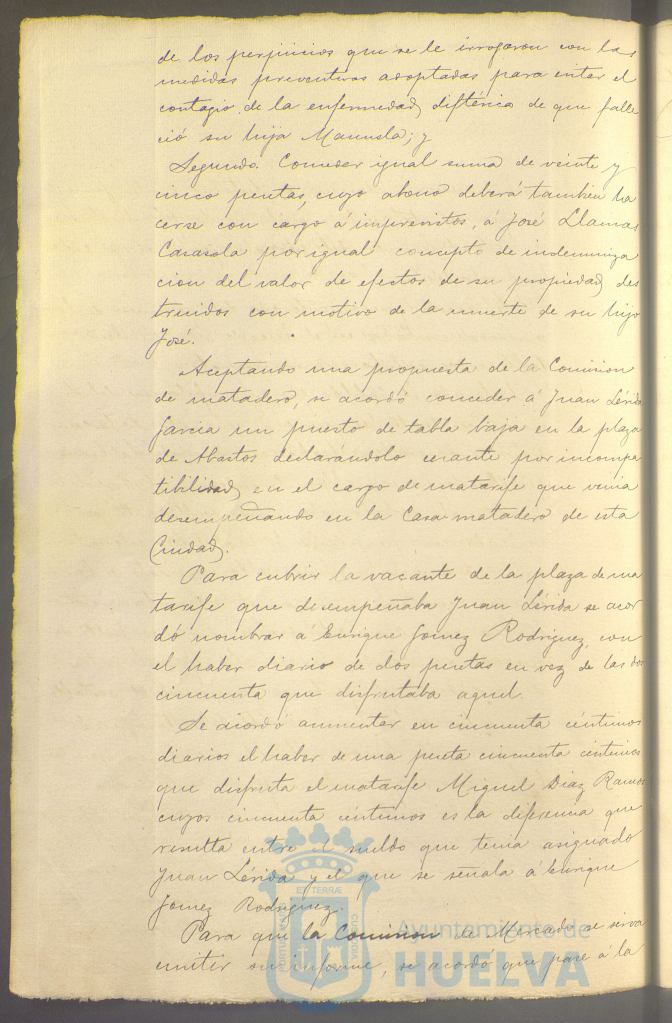 de los perjuicios que se le irrogaron con las
medidas preventivas adoptadas para evitar el
contagio de la enfermedad diftérica de que falle
ció su hija Manuela; y
Segundo. Conceder igual suma de veinte y
cinco pesetas, cuyo abono deberá tambien ha
cerse con cargo á imprevistos, á José Llamas
Casasola por igual concepto de indemniza
cion del valor de efectos de su propiedad des
truidos con motivo de la muerte de su hijo
José.
Aceptando una propuesta de la Comision
de matadero, se acordó conceder á Juan Lérida
Garcia un puesto de tabla baja en la plaza
de Abastos declarándolo cesante por incompa
tibilidad en el cargo de matarife que venia
desempeñando en la Casa-matadero de esta
Ciudad.
Para cubrir la vacante de la plaza de ma
tarife que desempeñaba Juan Lérida se acor
dó nombrar á Enrique Gomez Rodriguez, con
el haber diario de dos pesetas en vez de las dos
cincuenta que disfrutaba aquel.
Se acordó aumentar en cincuenta céntimos
diarios el haber de una peseta cincuenta céntimos
que disfruta el matarife Miguel Diaz Ramos
cuyos cincuenta céntimos es la diferencia que
resulta entre el sueldo que tenia asignado
Juan Lérida y el que se señala á Enrique
Gomez Rodriguez.
Para que la Comision de Mercado se sirva
emitir su informe, se acordó que pase á la
ET TERRÆ
PORTUS MARIS
CUSTODIA
Ayuntamiento de
HUELVA